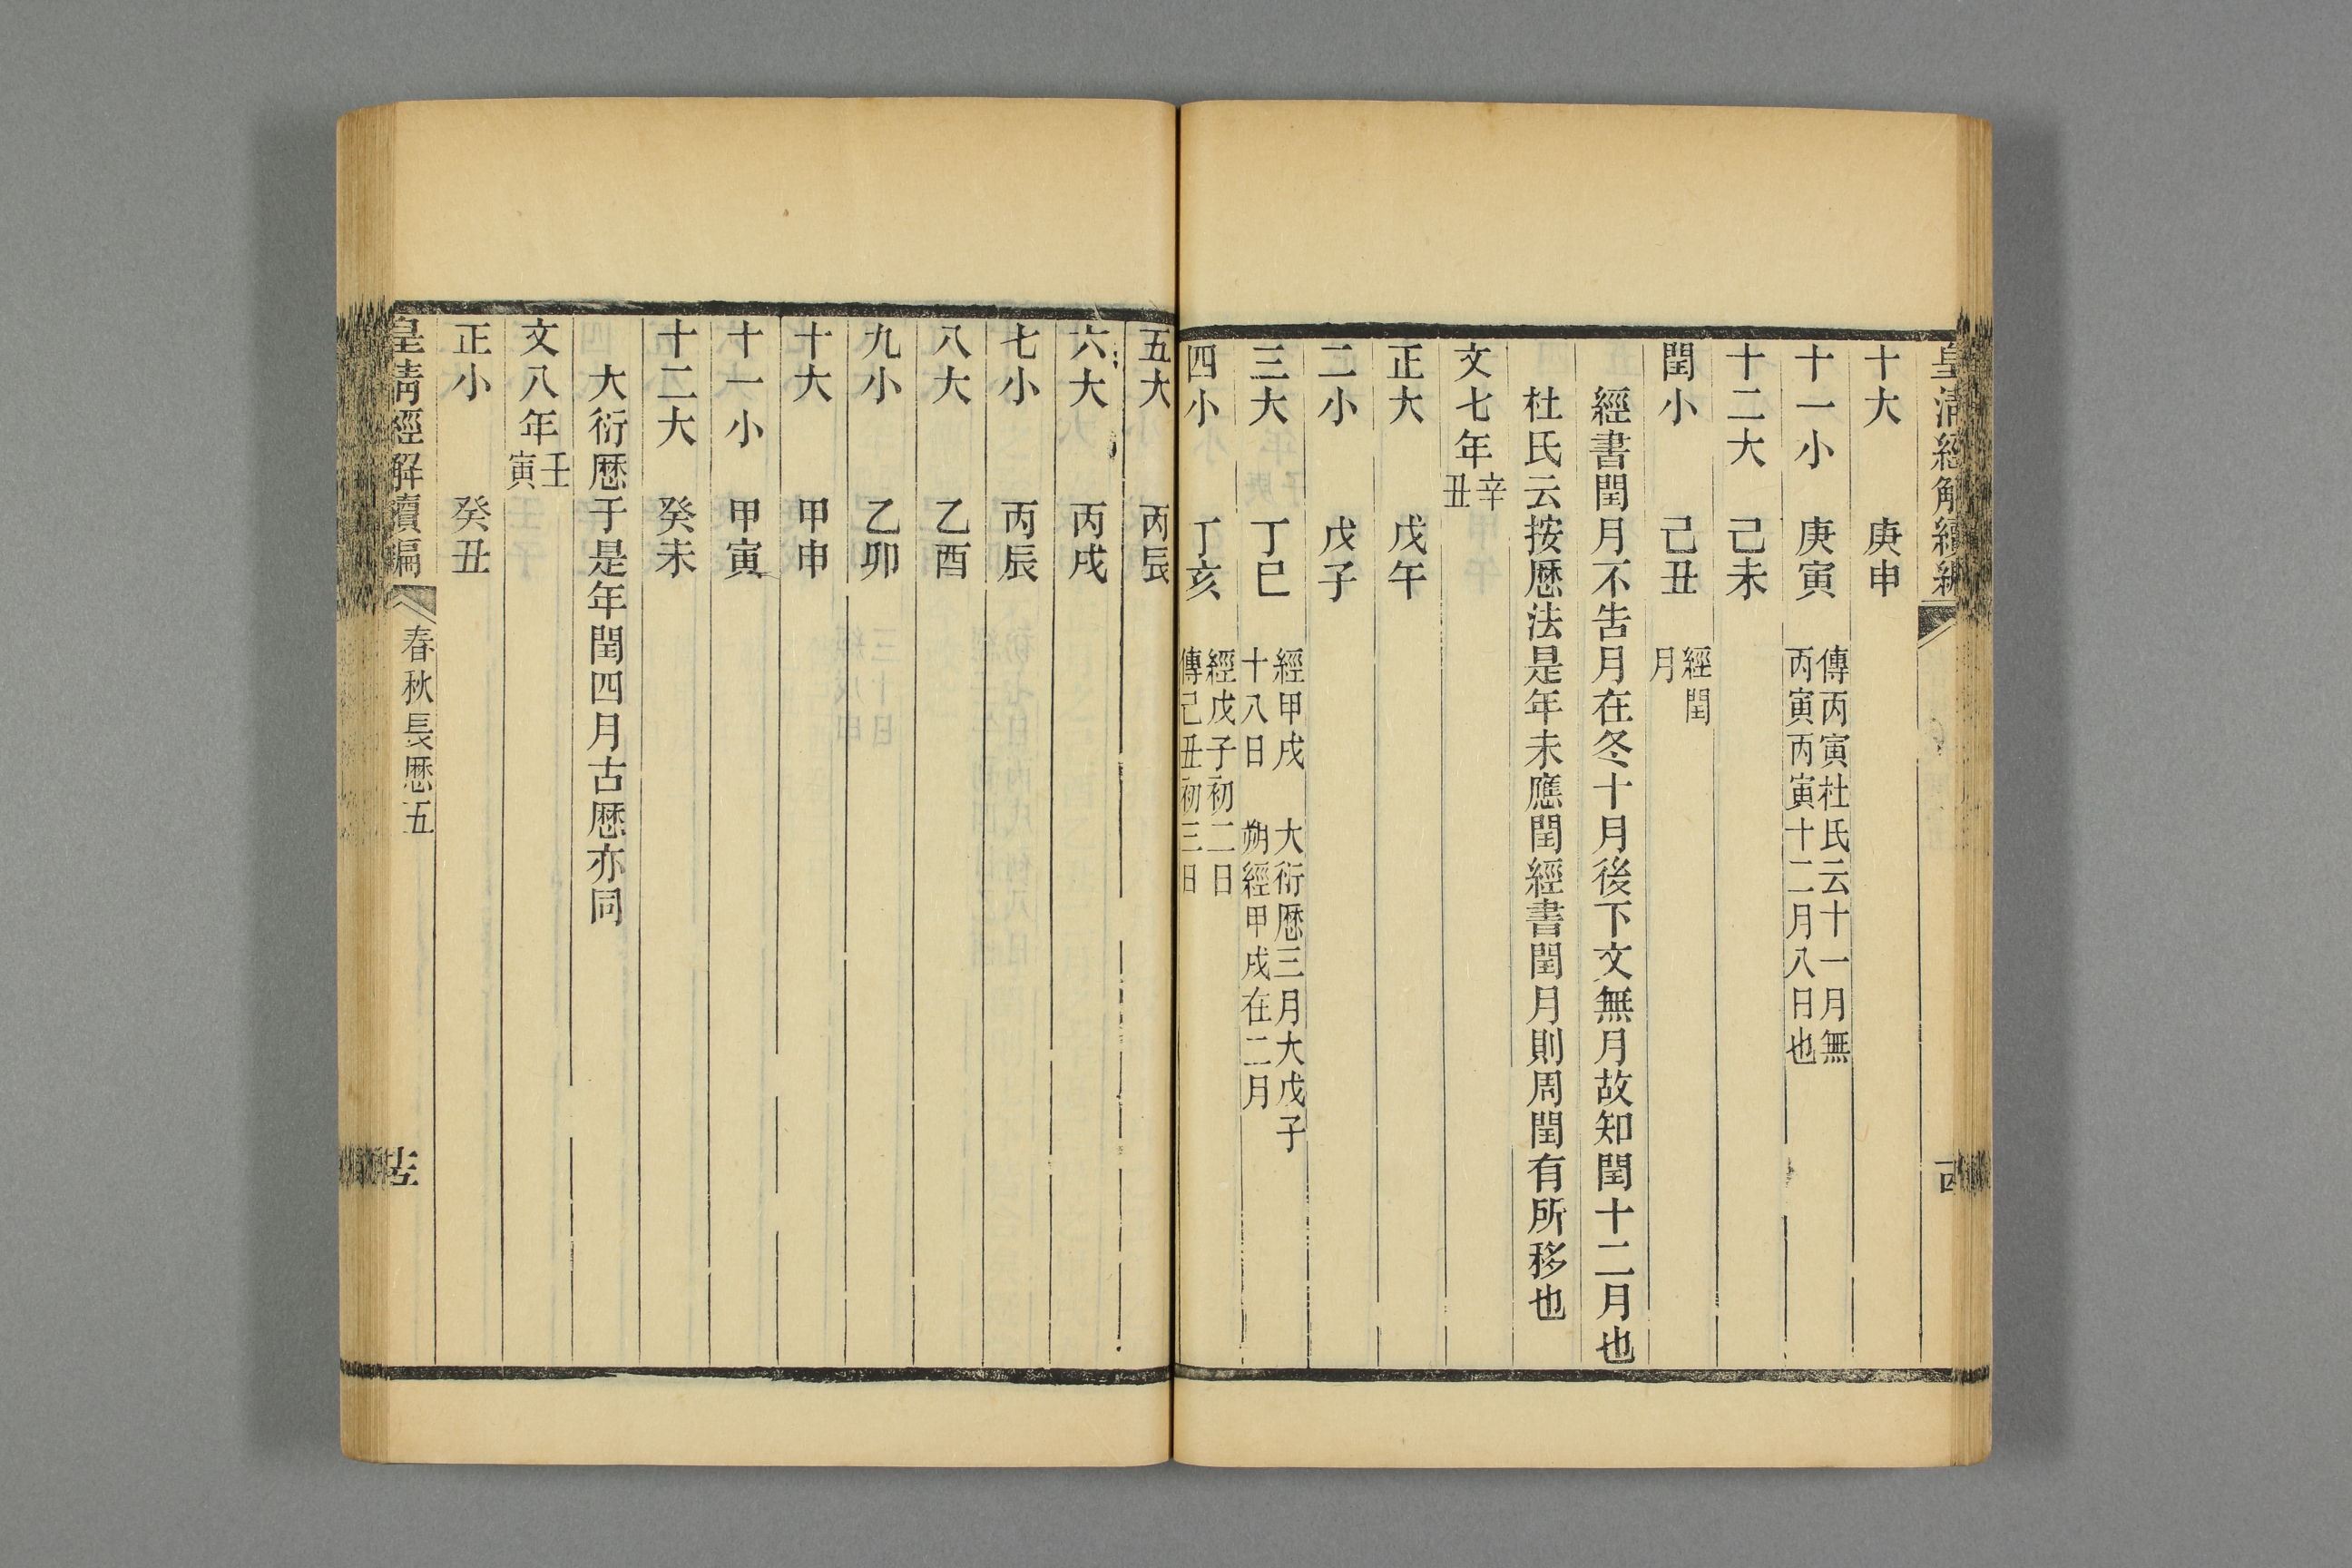 皇清經解續編
十大 庚申
十一小 庚寅 傳丙寅杜氏云十一月無丙寅丙寅十二月八日也
十二大 己未
閏小 己丑 經閏月
經書閏月不告月在冬十月後下文無月故知閏十二月也
杜氏云按厯法是年未應閏經書閏月則周閏有所移也
文七年辛丑
正大 戊午
二小 戊子
三大 丁巳 經甲戌十八日 大衍厯三月大戊子朔經甲戌在二月
四小 丁亥 經戊子初二日傳己丑初三日
五大 丙辰
六大 丙戌
七小 丙辰
八大 乙酉
九小 乙卯
十大 甲申
十一小 甲寅
十二大 癸未
大衍厯于是年閏四月古厯亦同
文八年壬寅
正小 癸丑
皇清經解續編 春秋長厯五